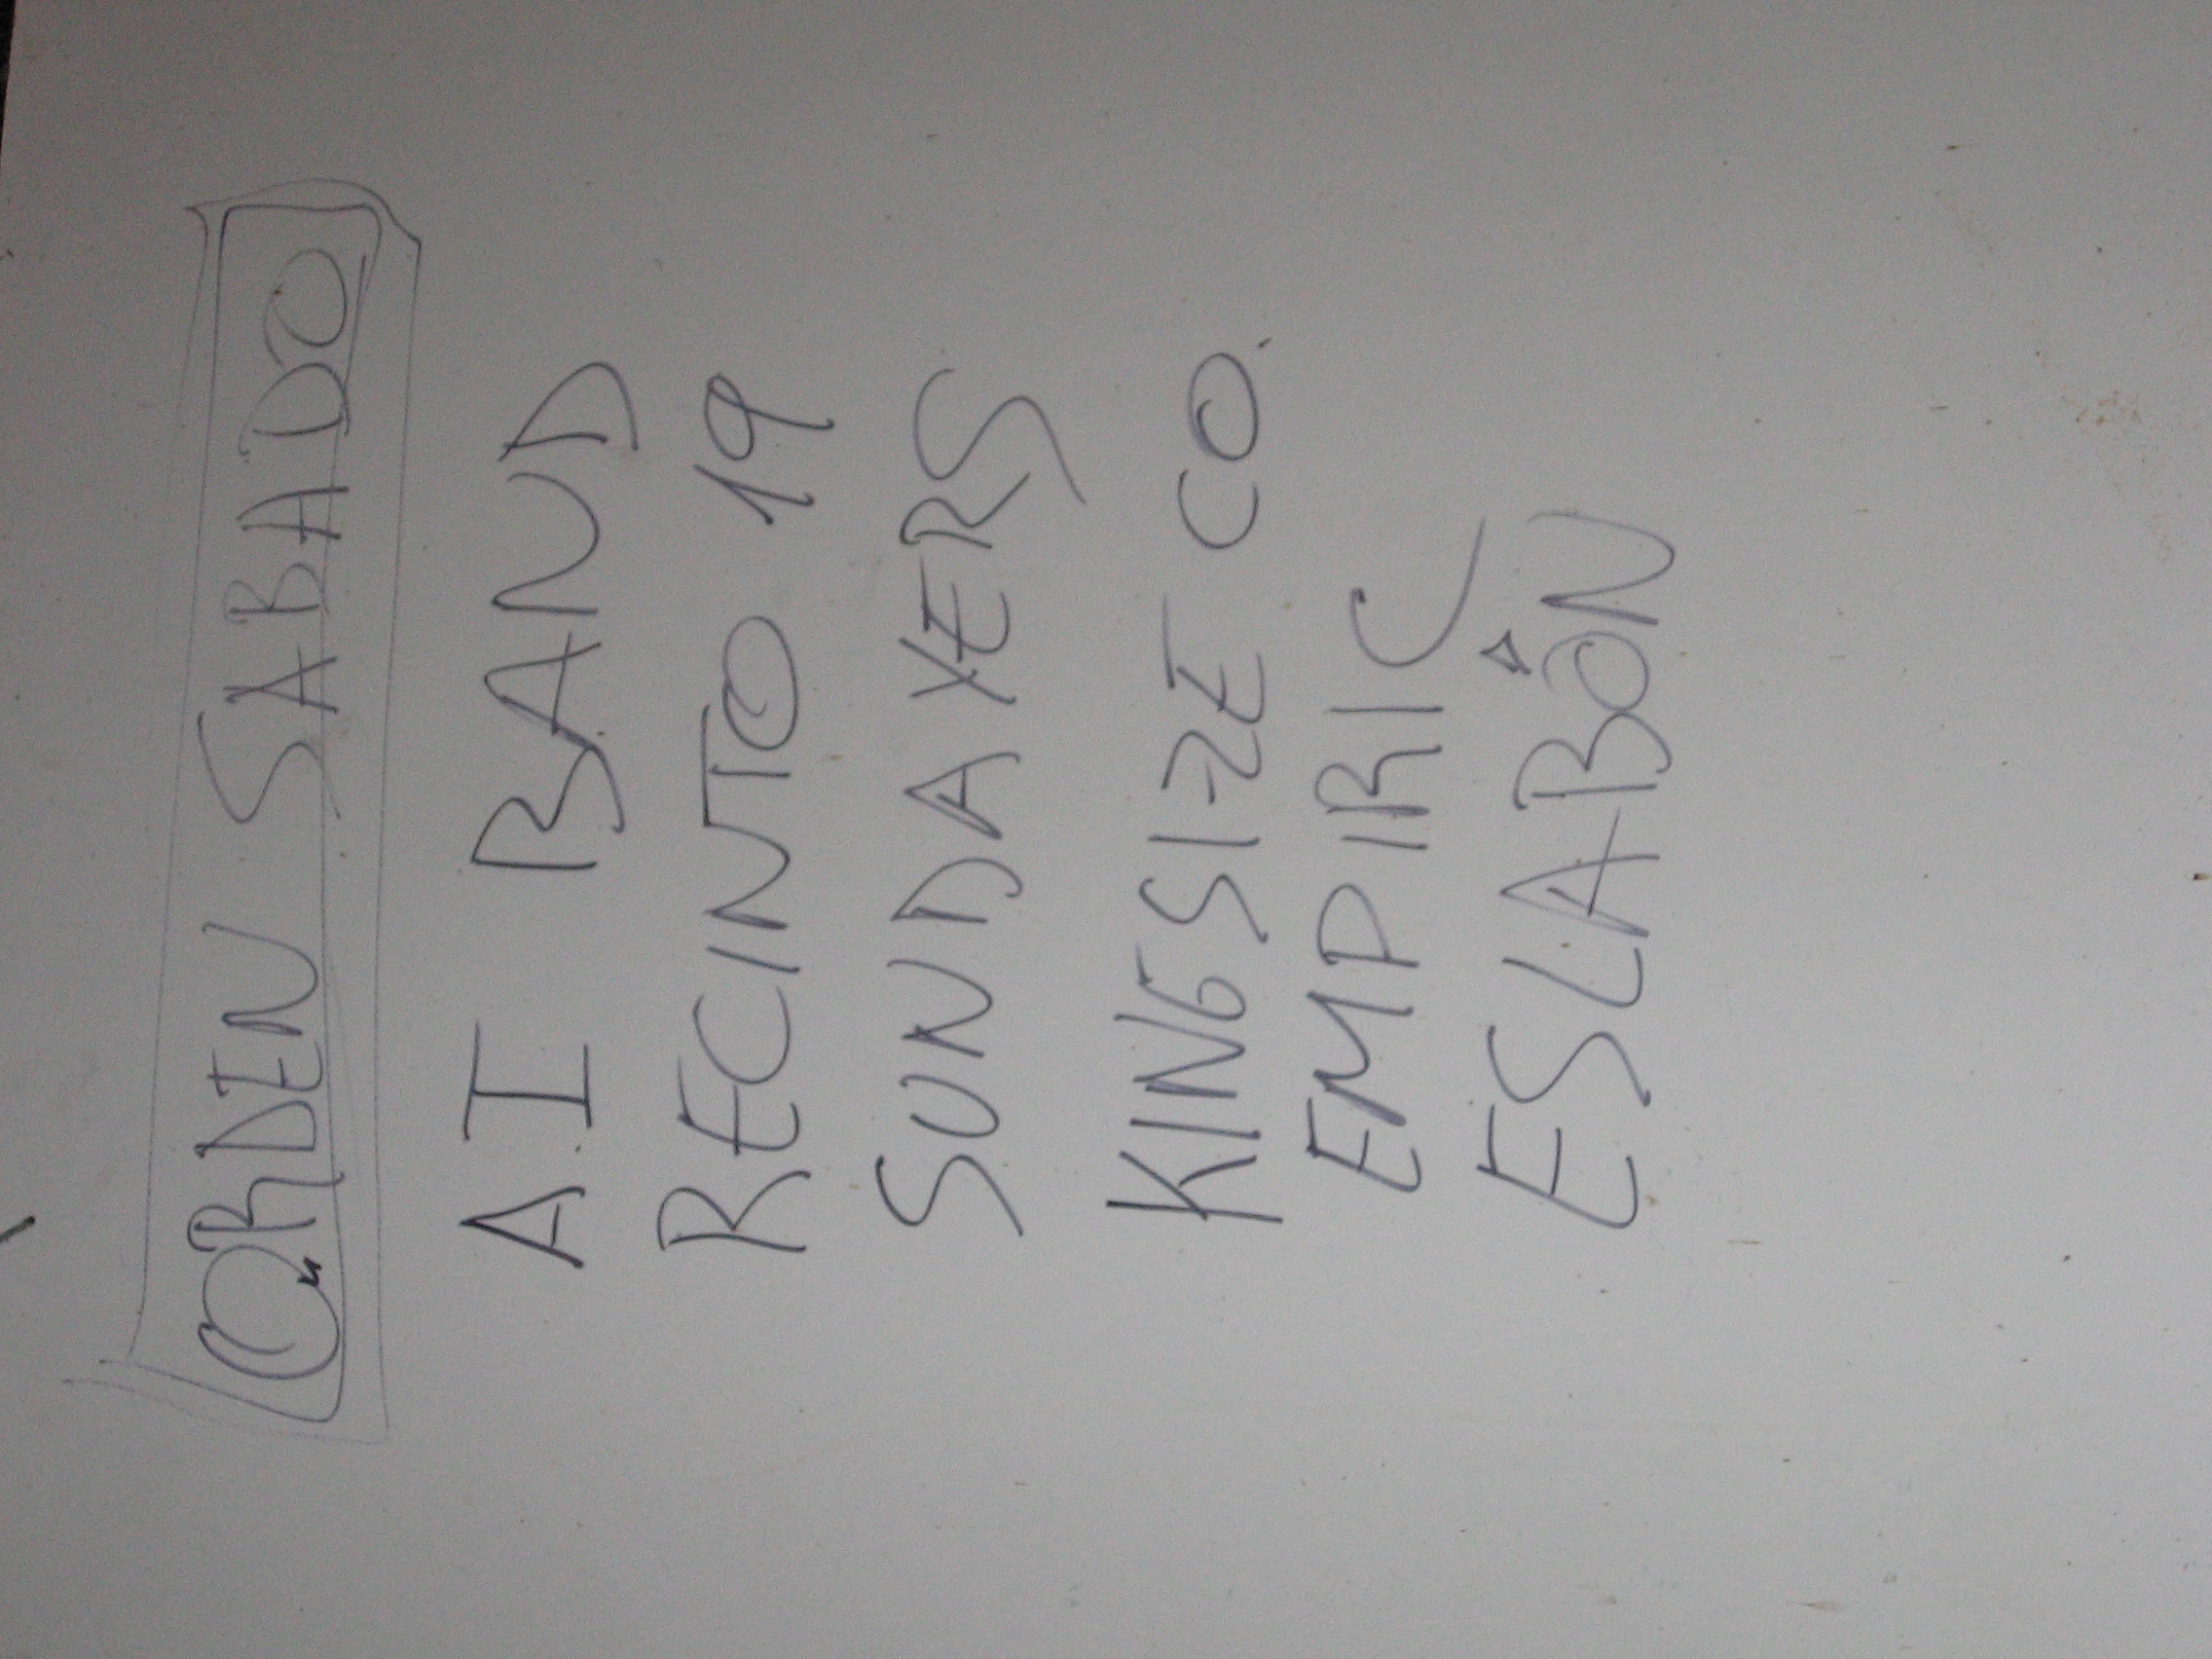 ORDEN SABADO
A.I BAND
RECINTO 19
SUNDAYERS
KINGSIZE CO.
EMPIRIC
ESLABÓN